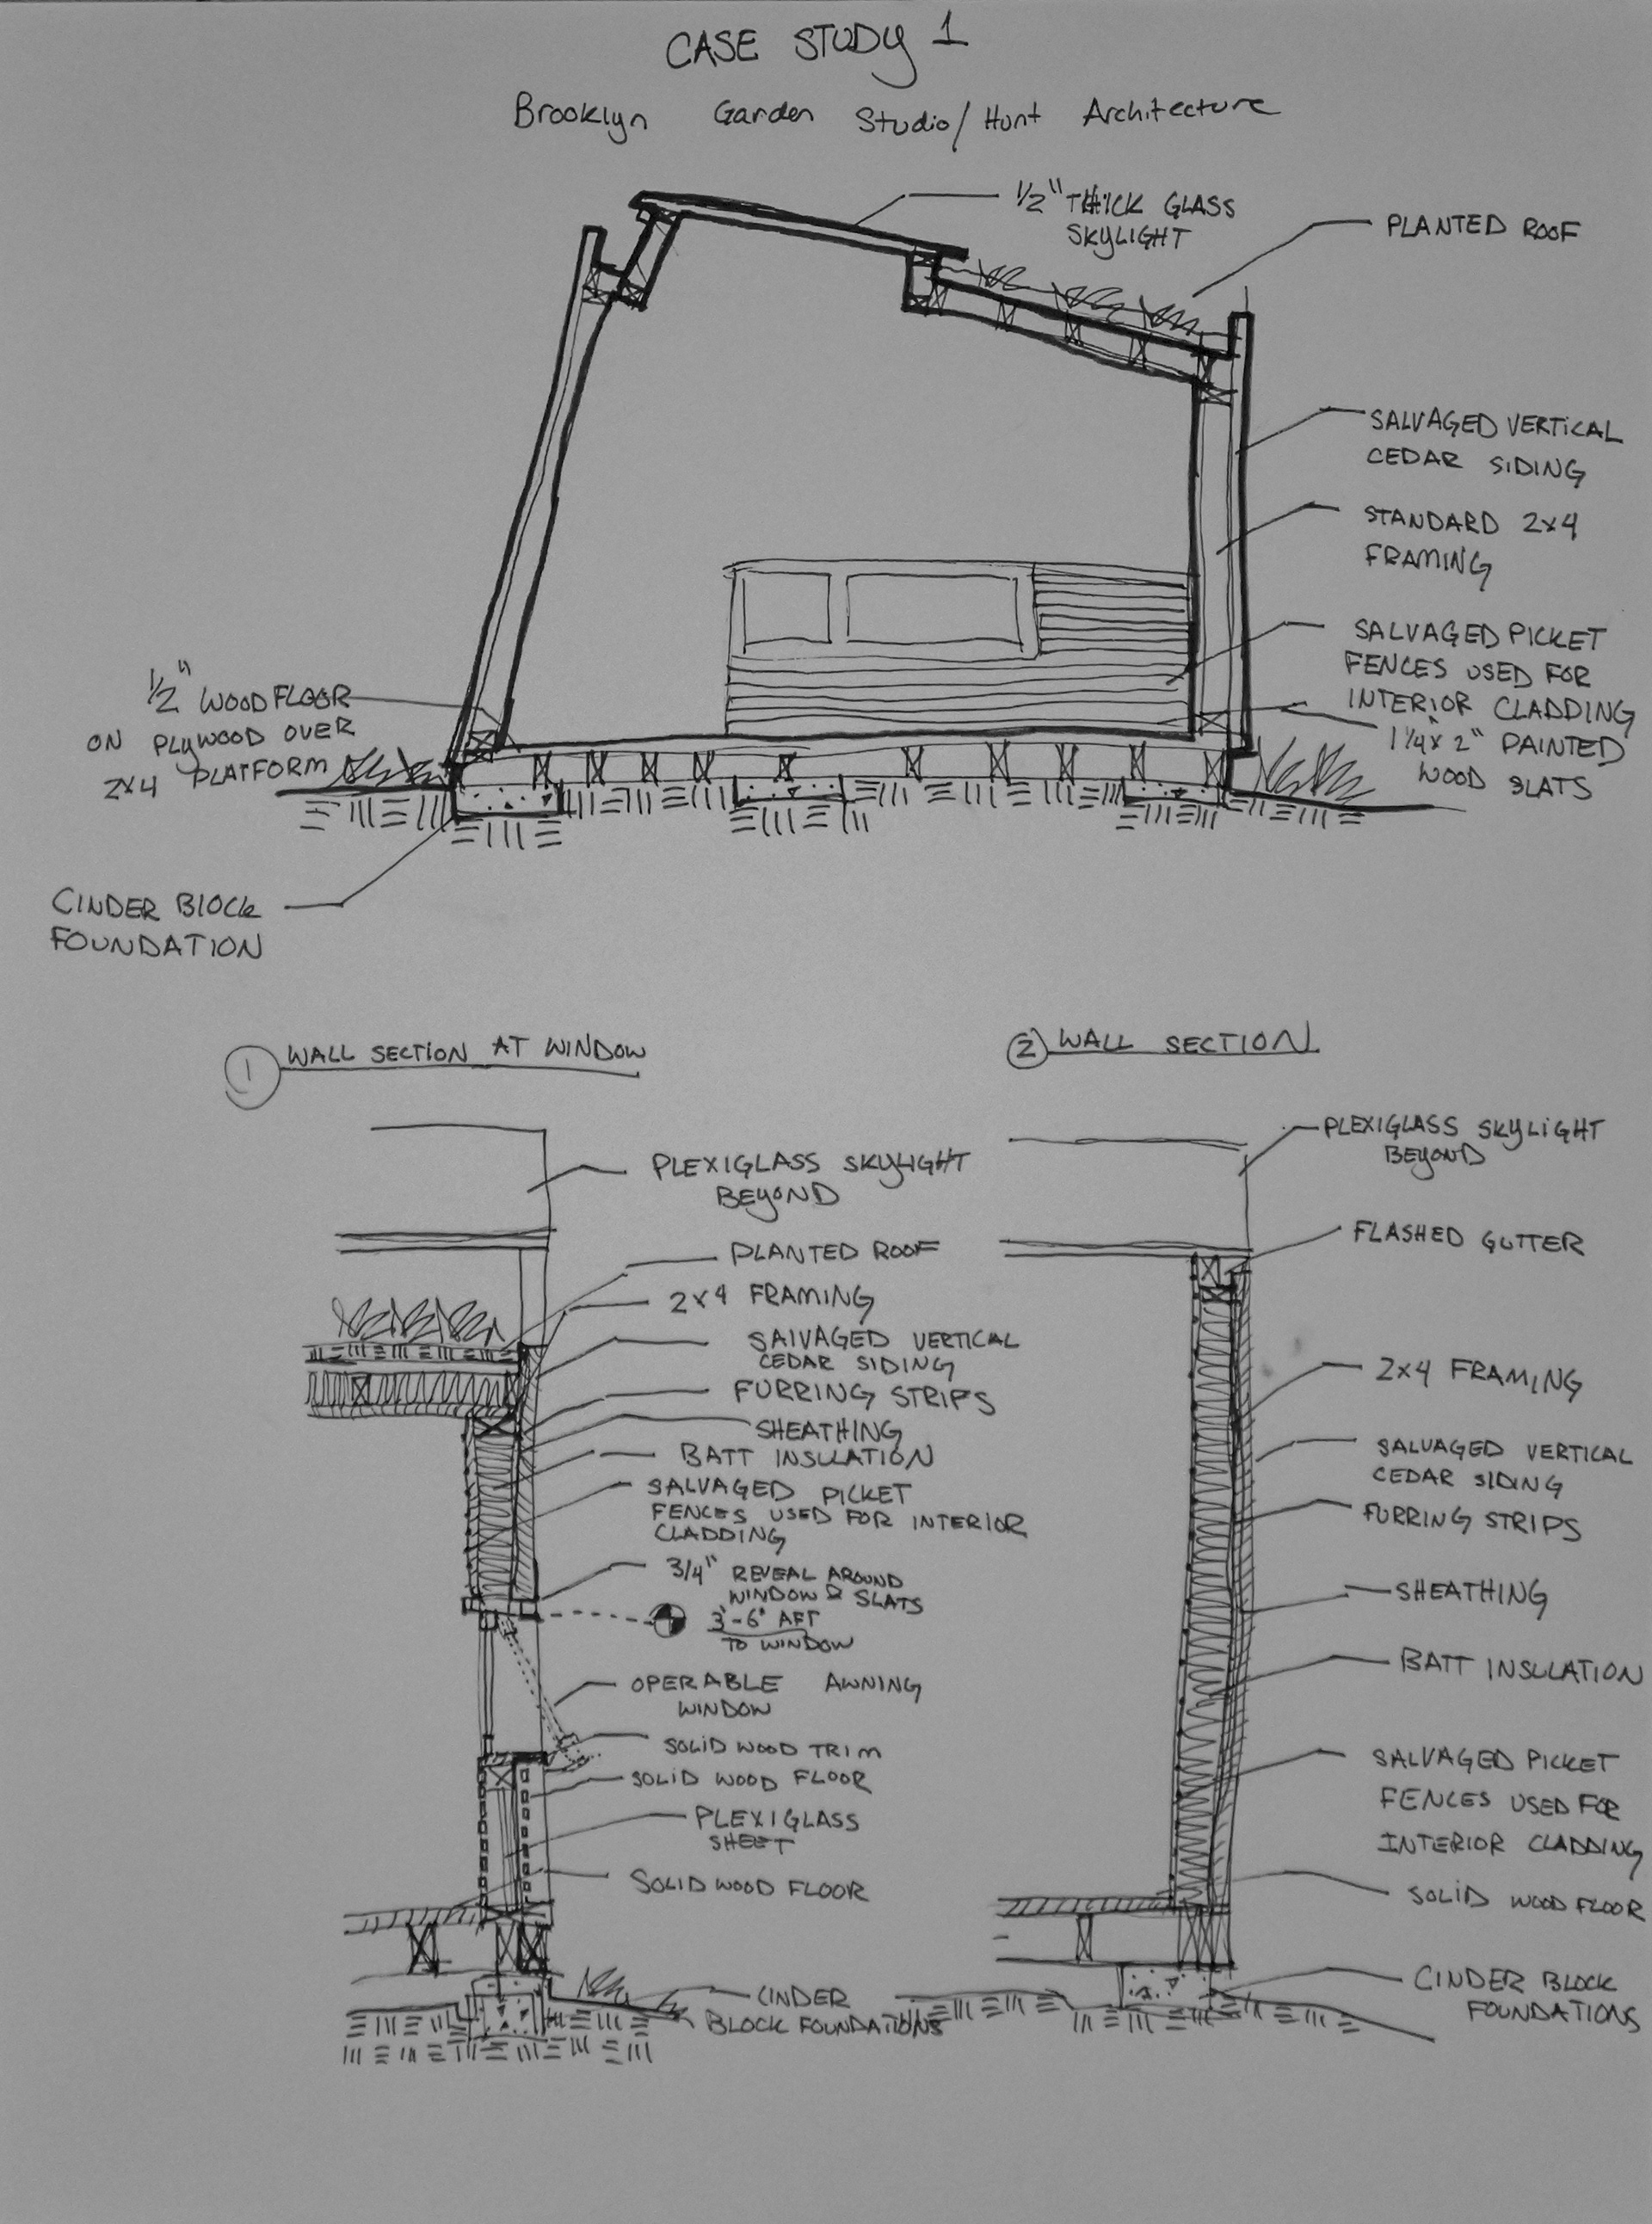 CASE STUDY 1
Brooklyn Garden Studio/Hunt Architecture
1/2" THICK GLASS
SKYLIGHT
PLANTED ROOF
SALVAGED VERTICAL
CEDAR SIDING
STANDARD 2x4
FRAMING
SALVAGED PICKET
FENCES USED FOR
INTERIOR CLADDING
1 1/4 x 2" PAINTED
WOOD SLATS
1/2" WOOD FLOOR
ON PLYWOOD OVER
2x4 PLATFORM
CINDER BLOCK
FOUNDATION
1 WALL SECTION AT WINDOW
PLEXIGLASS SKYLIGHT
BEYOND
PLANTED ROOF
2x4 FRAMING
SALVAGED VERTICAL
CEDAR SIDING
FURRING STRIPS
SHEATHING
BATT INSULATION
SALVAGED PICKET
FENCES USED FOR INTERIOR
CLADDING
3/4" REVEAL AROUND
WINDOW & SLATS
3'-6" AFF
TO WINDOW
OPERABLE AWNING
WINDOW
SOLID WOOD TRIM
SOLID WOOD FLOOR
PLEXIGLASS
SHEET
SOLID WOOD FLOOR
CINDER
BLOCK FOUNDATIONS
2 WALL SECTION
PLEXIGLASS SKYLIGHT
BEYOND
FLASHED GUTTER
2x4 FRAMING
SALVAGED VERTICAL
CEDAR SIDING
FURRING STRIPS
SHEATHING
BATT INSULATION
SALVAGED PICKET
FENCES USED FOR
INTERIOR CLADDING
SOLID WOOD FLOOR
CINDER BLOCK
FOUNDATIONS